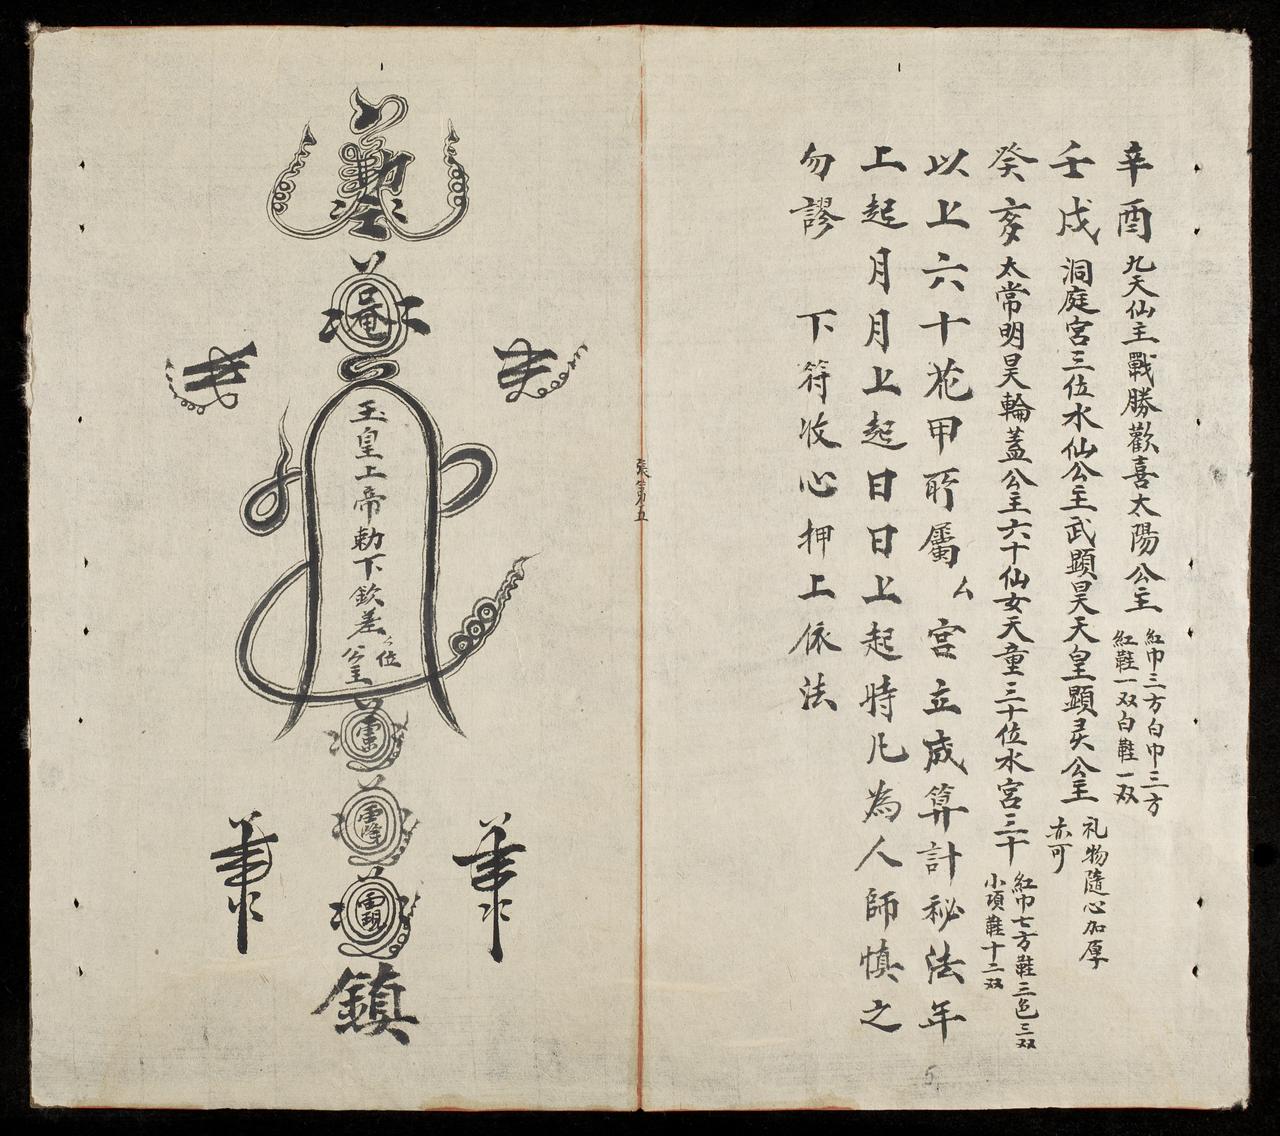 辛酉 九天仙主戰勝歡喜太陽公主 紅巾三方白巾三方
紅鞋一双白鞋一双
壬戌 洞庭宮三位水仙公主武顕昊天皇顕灵公主 礼物隨心加厚
亦可
癸亥 太常明昊輪蓋公主六十仙女天童三十位水宮三十 紅巾七方鞋三色三双
小項鞋十二双
以上六十花甲所屬厶宮立成算計秘法年
上起月月上起日日上起時凢為人師慎之
勿謬 下符收心押上依法
張第五
玉皇上帝勅下欽差厶位
公主
鎮